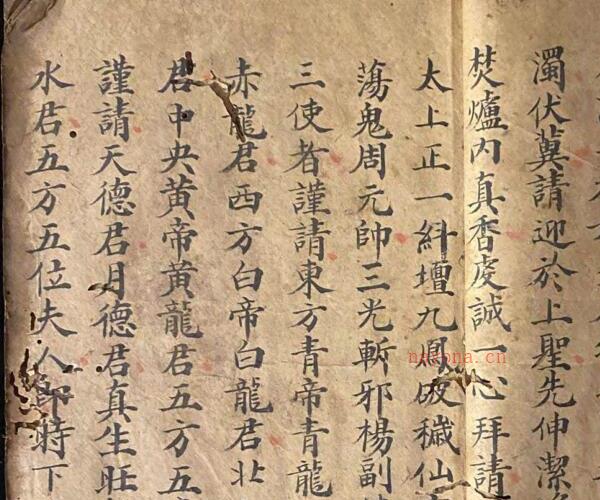 濁伏冀請迎於上聖先伸潔
焚爐内真香虔誠一心拜請
太上正一糾壇九鳳破穢仙
蕩鬼周元帥三光斬邪楊副
三使者謹請東方青帝青龍
赤龍君西方白帝白龍君北
君中央黄帝黄龍君五方五
謹請天德君月德君真生旺
水君五方五位夫人即時下
nayona.cn